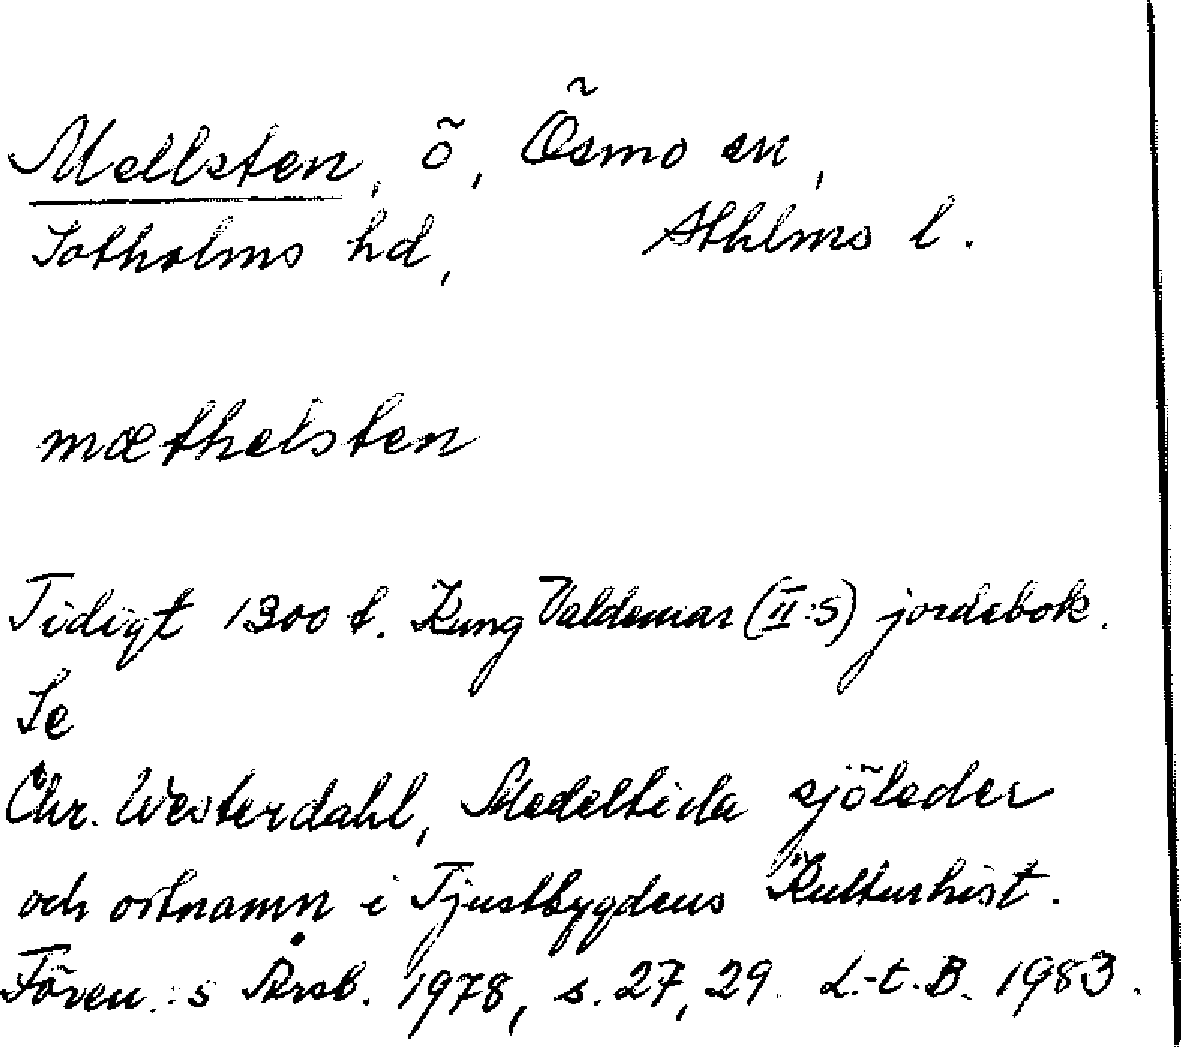 Mellsten, ö, Ösmo sn,
Sotholms hd, Sthlms l.
mæthelsten
Tidigt 1300 t. Kung Valdemar (II:s) jordebok.
Se
Chr. Westerdahl, Medeltida sjöleder
och ortnamn i Tjustbygdens Kulturhist.
Fören.:s Årsb. 1978, s. 27, 29. L-t. B. 1983.